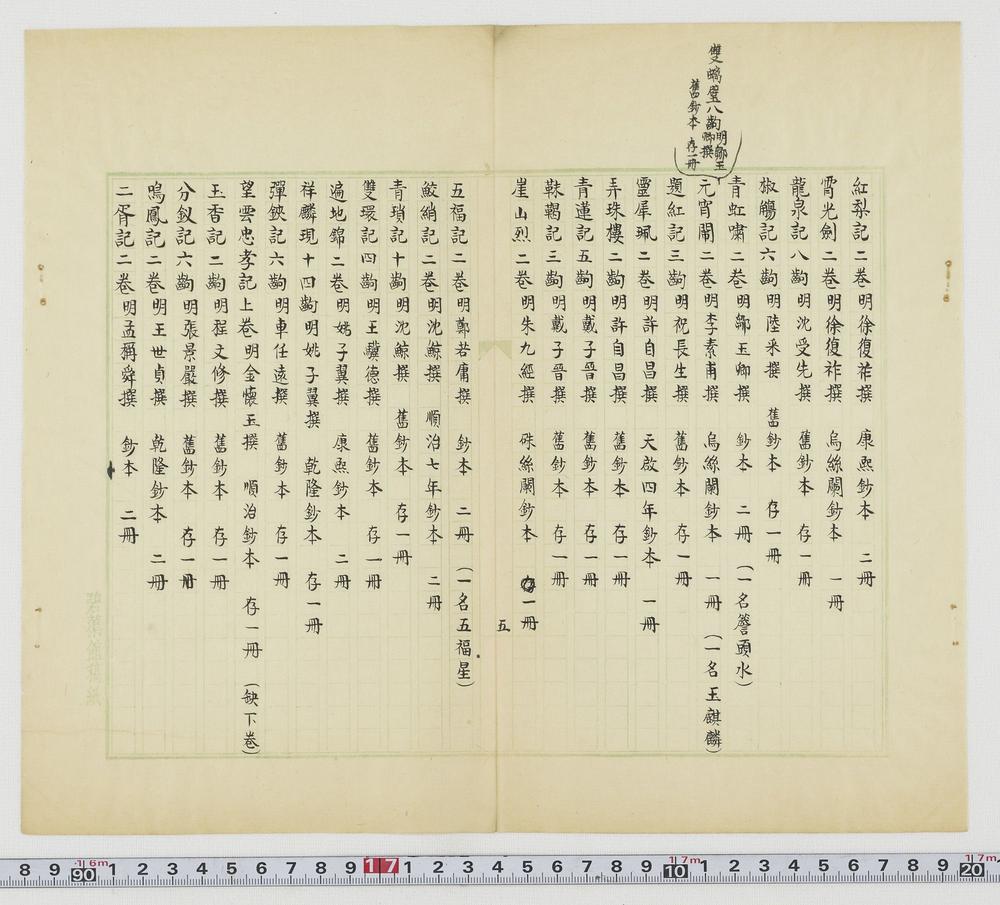 雙螭璧八齣明鄒玉卿撰
舊鈔本 存一冊
紅梨記二卷明徐復祚撰 康熙鈔本 二冊
霄光劍二卷明徐復祚撰 烏絲闌鈔本 一冊
龍泉記八齣明沈受先撰 舊鈔本 存一冊
椒觴記六齣明陸釆撰 舊鈔本 存一冊
青虹嘯二卷明鄒玉卿撰 鈔本 二冊 (一名簷頭水)
元宵鬧二卷明李素甫撰 烏絲闌鈔本 一冊 (一名玉麒麟)
題紅記三齣明祝長生撰 舊鈔本 存一冊
靈犀珮二卷明許自昌撰 天啟四年鈔本 一冊
弄珠樓二齣明許自昌撰 舊鈔本 存一冊
青蓮記五齣明戴子晉撰 舊鈔本 存一冊
靺鞨記三齣明戴子晉撰 舊鈔本 存一冊
崖山烈二卷明朱九經撰 硃絲闌鈔本 一冊
五
五福記二卷明鄭若庸撰 鈔本 二冊 (一名五福星)
鮫綃記二卷明沈鯨撰 順治七年鈔本 二冊
青瑣記十齣明沈鯨撰 舊鈔本 存一冊
雙環記四齣明王驥德撰 舊鈔本 存一冊
遍地錦二卷明姚子翼撰 康熙鈔本 二冊
祥麟現十四齣明姚子翼撰 乾隆鈔本 存一冊
彈鋏記六齣明車任遠撰 舊鈔本 存一冊
望雲忠孝記上卷明金懷玉撰 順治鈔本 存一冊 (缺下卷)
玉香記二齣明程文修撰 舊鈔本 存一冊
分釵記六齣明張景嚴撰 舊鈔本 存一冊
鳴鳳記二卷明王世貞撰 乾隆鈔本 二冊
二胥記二卷明孟稱舜撰 鈔本 二冊
8 9 90 1 2 3 4 5 6 7 8 9 17 1 2 3 4 5 6 7 8 9 10 1 2 3 4 5 6 7 8 9 20
1.6m 1.7m 1.7m